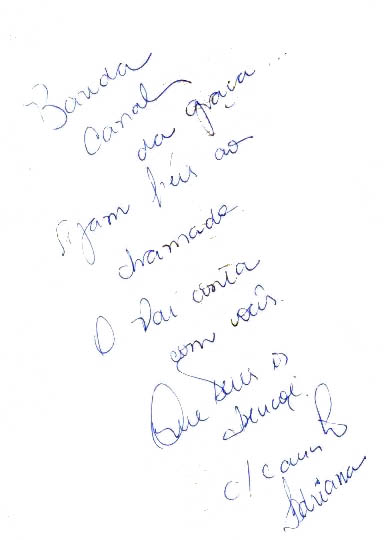 Banda
Canal
da graça...
Sejam fiéis ao
chamado.
O Pai conta
com vocês.
Que Deus os
abençoe.
c/ carinho
Adriana